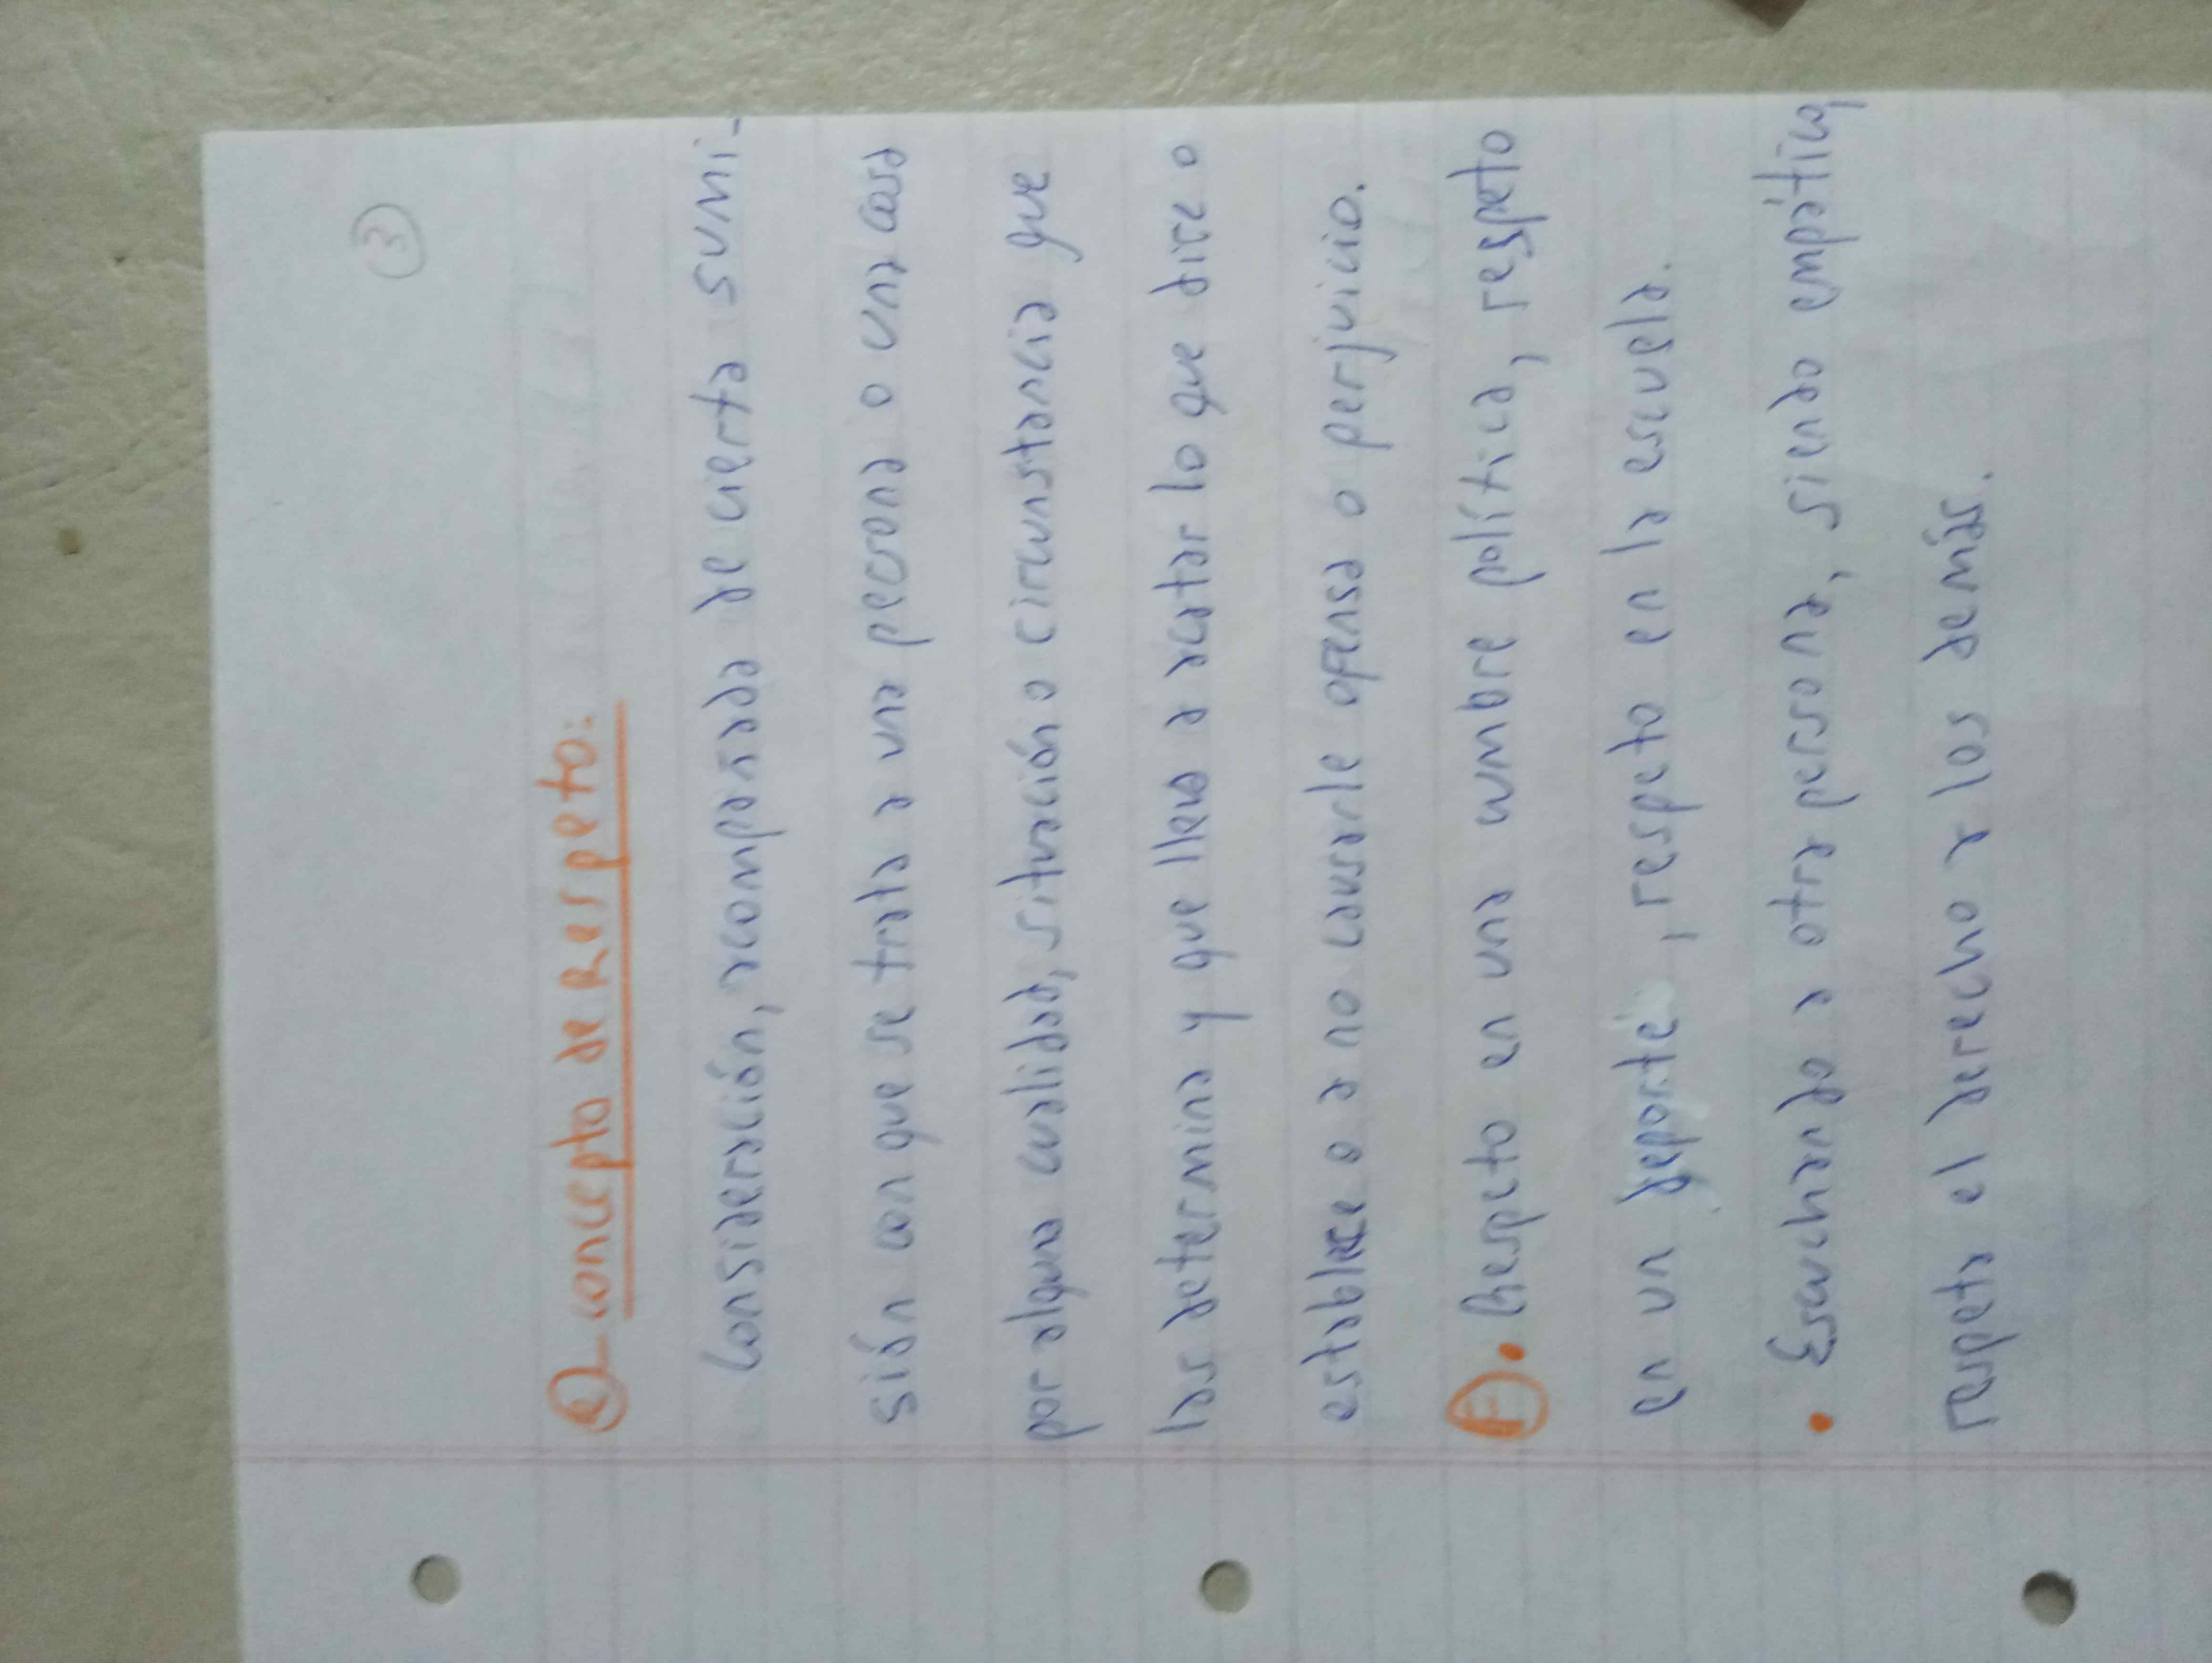 3
e) concepto de Respeto:
Consideración, acompañada de cierta sumi-
sión con que se trata a una pecrona o una cosa
por alguna cualidad, situación o circunstancia que
las determina y que lleva a acatar lo que dice o
establece o a no causarle ofensa o perjuicio.
F) • Respeto en una cumbre política, respeto
en un deporte, respeto en la escuela.
• Escuchando a otra persona, siendo empático,
respeta el derecho a los demás.